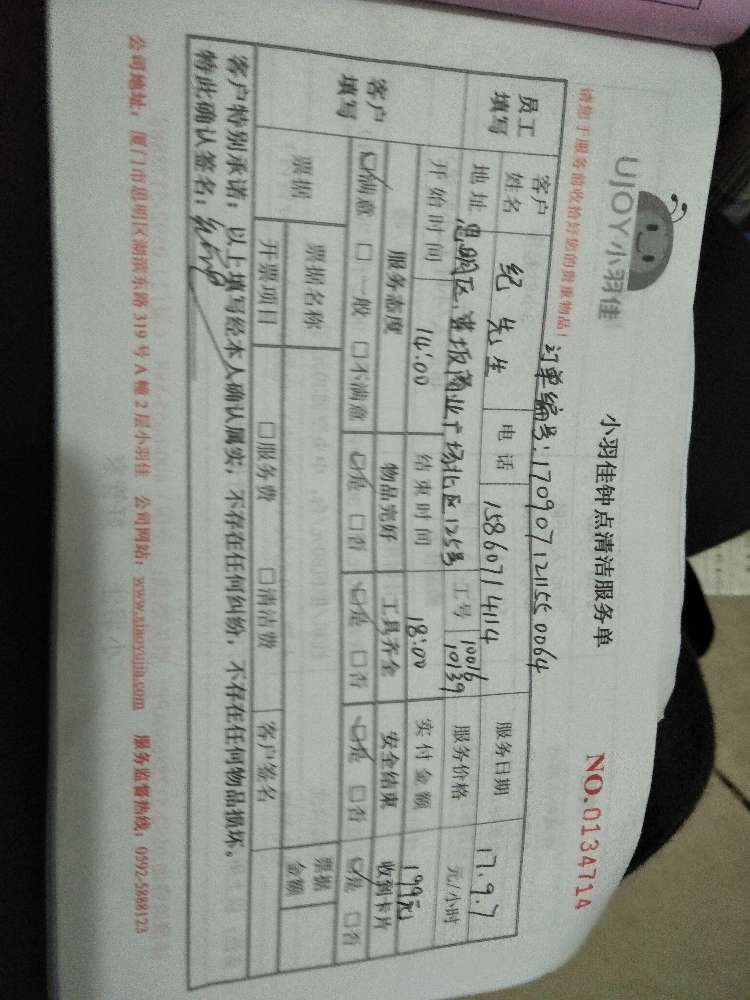 UJOY小羽佳
小羽佳钟点清洁服务单
NO.0134714
请您于服务前收拾好您的贵重物品!
订单编号:1709071211550064
员工填写 客户姓名 纪先生 电话 15860714114 服务日期 17.9.7
地址 思明区 商业广场北区125号 工号 10016 10139 服务价格 元/小时
开始时间 14:00 结束时间 18:00 实付金额 199元
客户填写 服务态度 物品完好 工具齐全 安全结束 收到卡片
☑满意 □一般 □不满意 ☑是 □否 ☑是 □否 ☑是 □否 ☑是 □否
票据 票据名称 票据金额
开票项目 □服务费 □清洁费 客户签名
客户特别承诺:以上填写经本人确认属实,不存在任何纠纷,不存在任何物品损坏。
特此确认签名:
公司地址:厦门市思明区湖滨东路319号A幢2层小羽佳 公司网站:www.xiaoyujia.com 服务监督热线:0592-5888123